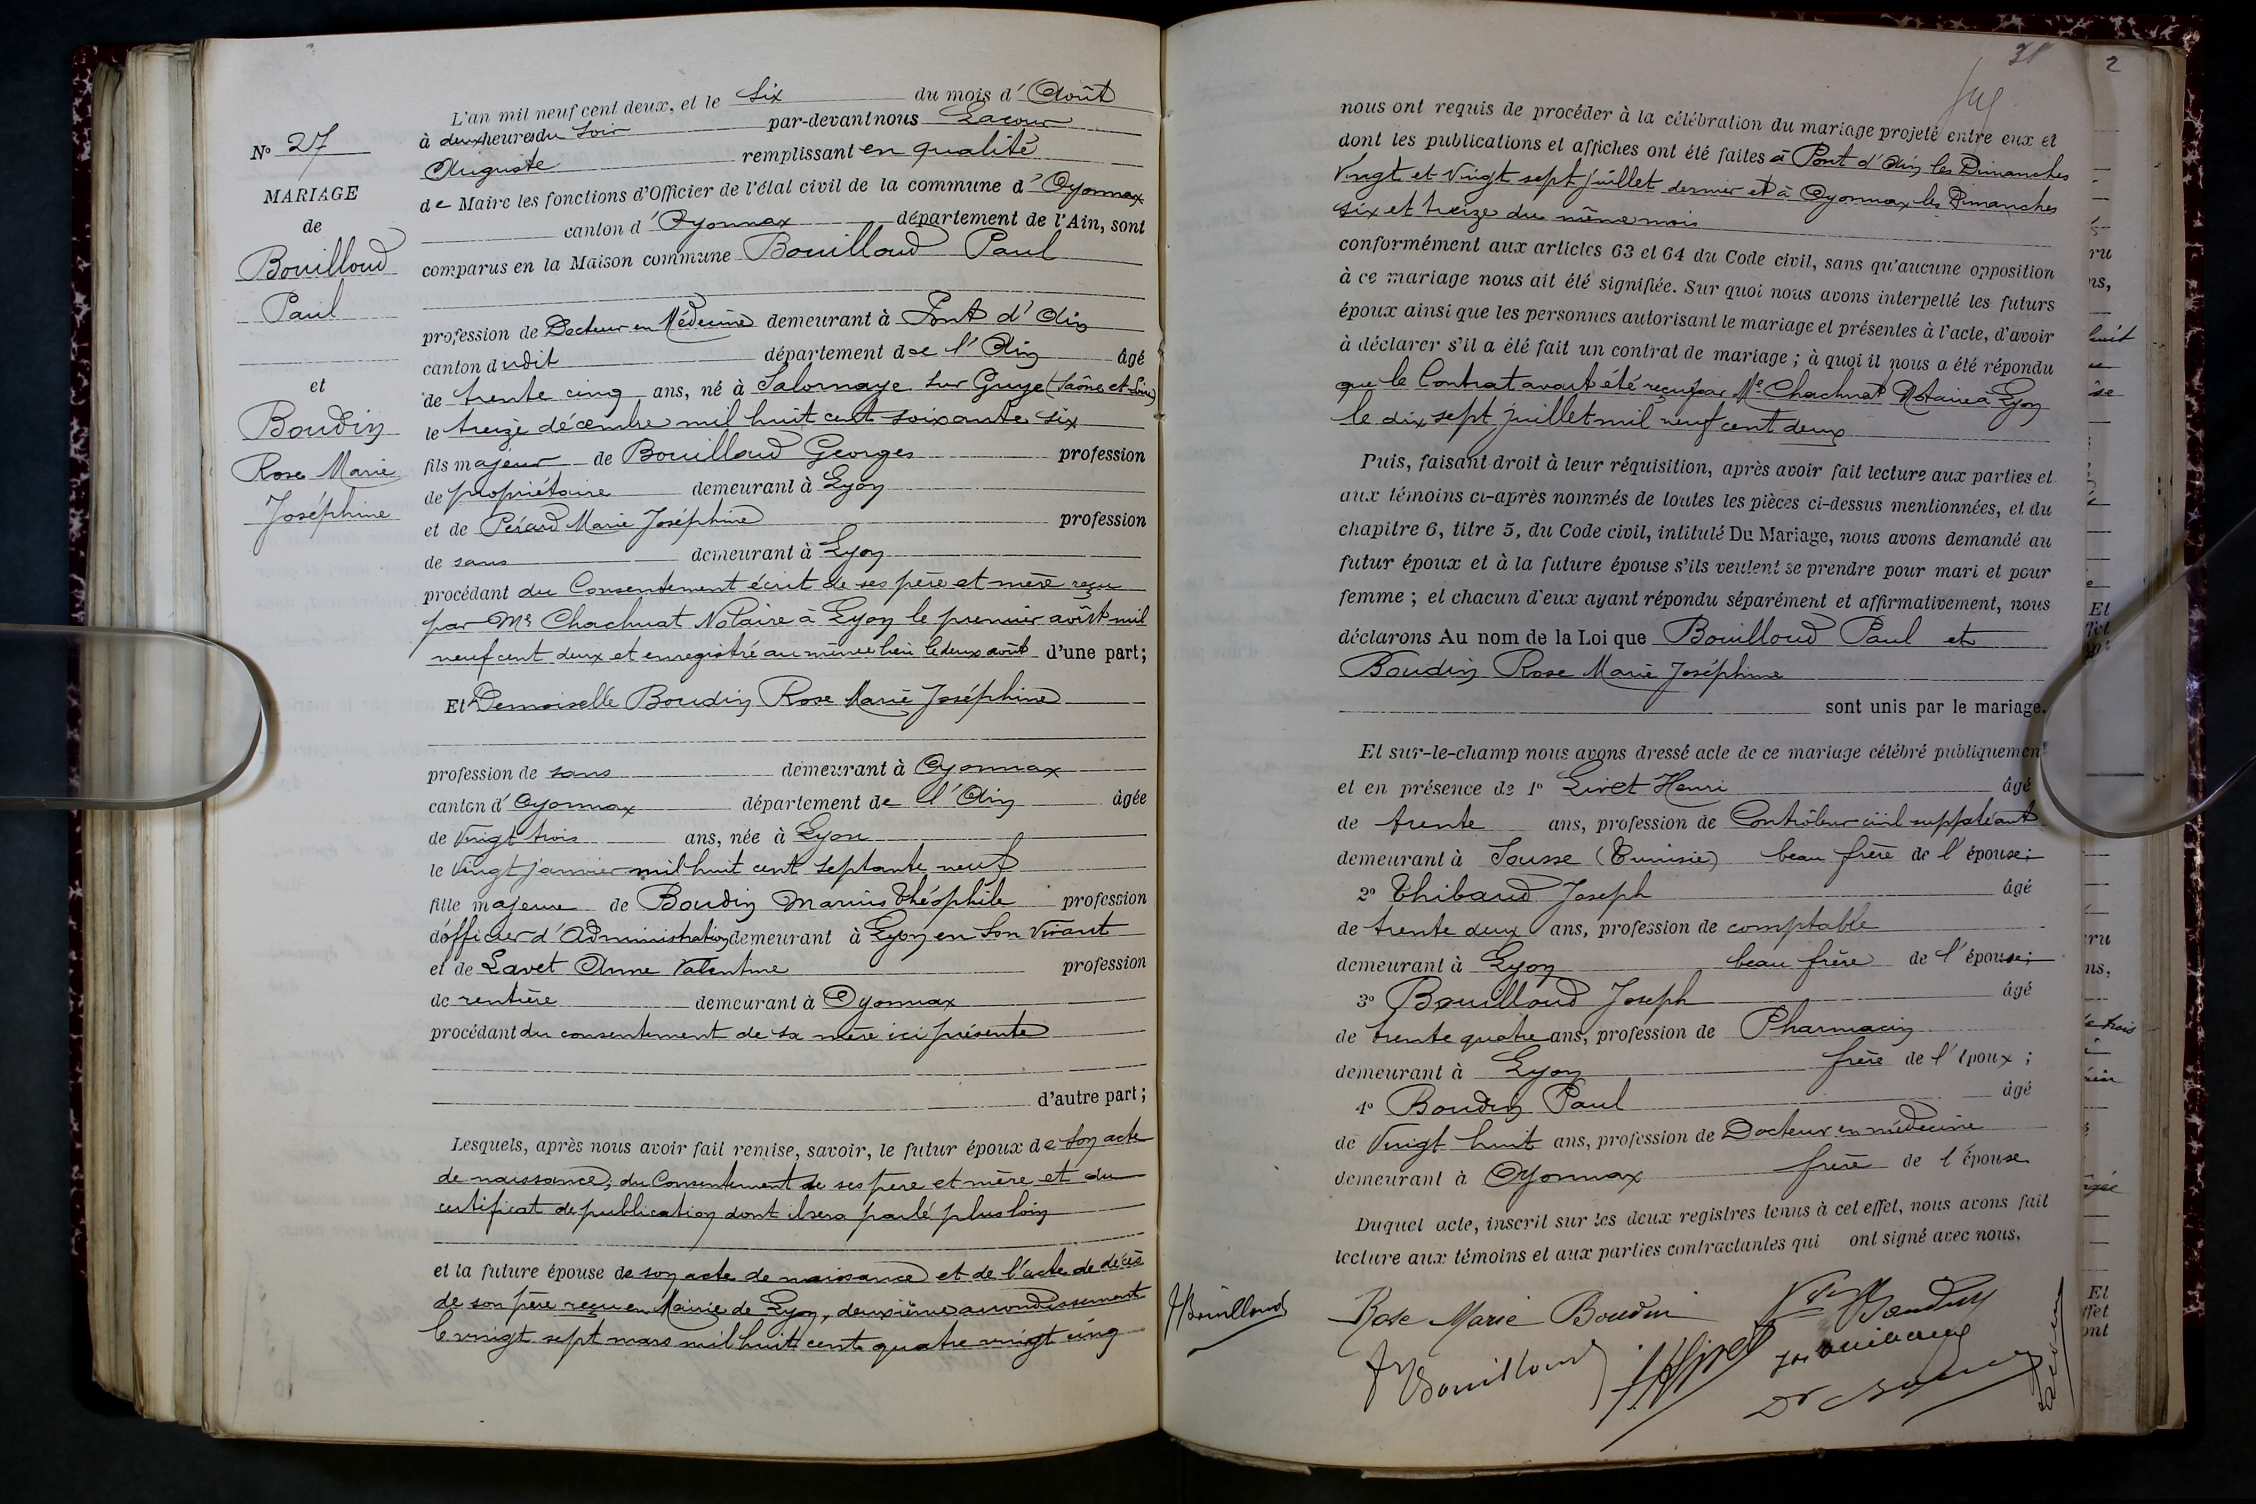 L'an mil neuf cent deux, et le Six du mois d'Août
à deux heures du Soir par-devant nous Lacour
Auguste remplissant en qualité
de Maire les fonctions d'Officier de l'état civil de la commune d'Oyonnax
canton d'Oyonnax département de l'Ain, sont
comparus en la Maison commune Bouilloud Paul
profession de Docteur en Médecine demeurant à Pont d'Ain
canton dudit département de l'Ain âgé
de trente cinq ans, né à Salornaye sur Guye (Saône et Loire)
le treize décembre mil huit cent soixante six
fils majeur de Bouilloud Georges profession
de propriétaire demeurant à Lyon
et de Pérard Marie Joséphine profession
de sans demeurant à Lyon
procédant du Consentement écrit de ses père et mère reçu
par Me Chachuat Notaire à Lyon le premier août mil
neuf cent deux et enregistré au même lieu le deux août d'une part;
Et Demoiselle Boudin Rose Marie Joséphine
profession de sans demeurant à Oyonnax
canton d'Oyonnax département de l'Ain âgée
de Vingt trois ans, née à Lyon
le Vingt janvier mil huit cent septante neuf
fille majeure de Boudin Marius Théophile profession
d'officier d'Administration demeurant à Lyon en Son Vivant
et de Lavet Anne Valentine profession
de rentière demeurant à Oyonnax
procédant du consentement de sa mère ici présente
d'autre part;
Lesquels, après nous avoir fait remise, savoir, le futur époux de Son acte
de naissance, du Consentement de ses père et mère et du
certificat de publication dont il sera parlé plus loin
et la future épouse de son acte de naissance et de l'acte de décès
de son père reçu en Mairie de Lyon, deuxième arrondissement
le vingt sept mars mil huit cent quatre vingt cinq
No 27
MARIAGE
de
Bouilloud
Paul
et
Boudin
Rose Marie
Joséphine
nous ont requis de procéder à la célébration du mariage projeté entre eux et
dont les publications et affiches ont été faites à Pont d'Ain les Dimanches
Vingt et Vingt sept juillet dernier et à Oyonnax les Dimanches
six et treize du même mois
conformément aux articles 63 et 64 du Code civil, sans qu'aucune opposition
à ce mariage nous ait été signifiée. Sur quoi nous avons interpellé les futurs
époux ainsi que les personnes autorisant le mariage et présentes à l'acte, d'avoir
à déclarer s'il a été fait un contrat de mariage; à quoi il nous a été répondu
que le Contrat avait été reçu par Me Chachuat Notaire à Lyon
le dix sept juillet mil neuf cent deux
Puis, faisant droit à leur réquisition, après avoir fait lecture aux parties et
aux témoins ci-après nommés de toutes les pièces ci-dessus mentionnées, et du
chapitre 6, titre 5, du Code civil, intitulé Du Mariage, nous avons demandé au
futur époux et à la future épouse s'ils veulent se prendre pour mari et pour
femme; et chacun d'eux ayant répondu séparément et affirmativement, nous
déclarons Au nom de la Loi que Bouilloud Paul et
Boudin Rose Marie Joséphine
sont unis par le mariage.
Et sur-le-champ nous avons dressé acte de ce mariage célébré publiquement
et en présence de 1º Livet Henri âgé
de trente ans, profession de Contrôleur civil suppléant
demeurant à Sousse (Tunisie) beau frère de l'épouse;
2º Thibaud Joseph âgé
de trente deux ans, profession de comptable
demeurant à Lyon beau frère de l'épouse;
3º Bouilloud Joseph âgé
de trente quatre ans, profession de Pharmacien
demeurant à Lyon frère de l'époux;
4º Boudin Paul âgé
de Vingt huit ans, profession de Docteur en médecine
demeurant à Oyonnax frère de l'épouse
Duquel acte, inscrit sur les deux registres tenus à cet effet, nous avons fait
lecture aux témoins et aux parties contractantes qui ont signé avec nous.
Bouilloud Rose Marie Boudin Vve Boudin
Bouilloud HLivet Thibaud
Dr Boudin Lacour